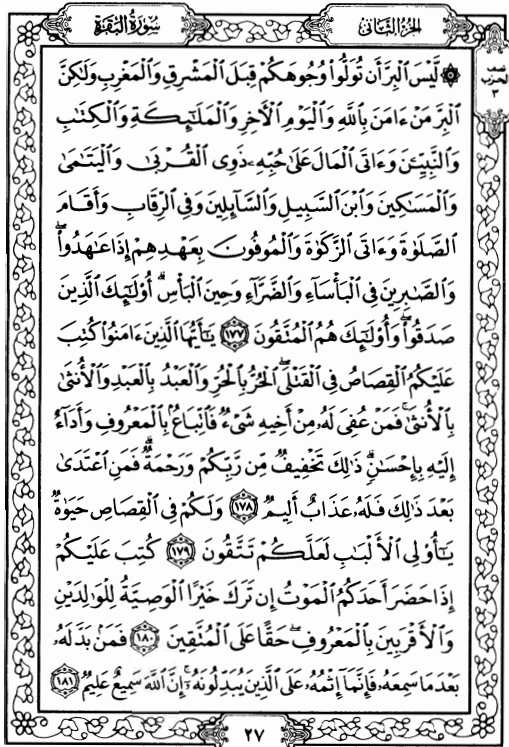 سُورَةُ البَقَرَةِ
الجُزءُ الثَّانِي
نصف
الحزب
٣
۞ لَّيْسَ الْبِرَّ أَن تُوَلُّوا۟ وُجُوهَكُمْ قِبَلَ الْمَشْرِقِ وَالْمَغْرِبِ وَلَٰكِنَّ
الْبِرَّ مَنْ ءَامَنَ بِاللَّهِ وَالْيَوْمِ الْأَخِرِ وَالْمَلَٰٓئِكَةِ وَالْكِتَٰبِ
وَالنَّبِيِّۦنَ وَءَاتَى الْمَالَ عَلَىٰ حُبِّهِۦ ذَوِى الْقُرْبَىٰ وَالْيَتَٰمَىٰ
وَالْمَسَٰكِينَ وَابْنَ السَّبِيلِ وَالسَّآئِلِينَ وَفِى الرِّقَابِ وَأَقَامَ
الصَّلَوٰةَ وَءَاتَى الزَّكَوٰةَ وَالْمُوفُونَ بِعَهْدِهِمْ إِذَا عَٰهَدُوا۟ ۖ
وَالصَّٰبِرِينَ فِى الْبَأْسَآءِ وَالضَّرَّآءِ وَحِينَ الْبَأْسِ ۗ أُو۟لَٰٓئِكَ الَّذِينَ
صَدَقُوا۟ ۖ وَأُو۟لَٰٓئِكَ هُمُ الْمُتَّقُونَ ١٧٧ يَٰٓأَيُّهَا الَّذِينَ ءَامَنُوا۟ كُتِبَ
عَلَيْكُمُ الْقِصَاصُ فِى الْقَتْلَى ۖ الْحُرُّ بِالْحُرِّ وَالْعَبْدُ بِالْعَبْدِ وَالْأُنثَىٰ
بِالْأُنثَىٰ ۚ فَمَنْ عُفِىَ لَهُۥ مِنْ أَخِيهِ شَىْءٌ فَاتِّبَاعٌۢ بِالْمَعْرُوفِ وَأَدَآءٌ
إِلَيْهِ بِإِحْسَٰنٍ ۗ ذَٰلِكَ تَخْفِيفٌ مِّن رَّبِّكُمْ وَرَحْمَةٌ ۗ فَمَنِ اعْتَدَىٰ
بَعْدَ ذَٰلِكَ فَلَهُۥ عَذَابٌ أَلِيمٌ ١٧٨ وَلَكُمْ فِى الْقِصَاصِ حَيَوٰةٌ
يَٰٓأُو۟لِى الْأَلْبَٰبِ لَعَلَّكُمْ تَتَّقُونَ ١٧٩ كُتِبَ عَلَيْكُمْ
إِذَا حَضَرَ أَحَدَكُمُ الْمَوْتُ إِن تَرَكَ خَيْرًا الْوَصِيَّةُ لِلْوَٰلِدَيْنِ
وَالْأَقْرَبِينَ بِالْمَعْرُوفِ ۖ حَقًّا عَلَى الْمُتَّقِينَ ١٨٠ فَمَنۢ بَدَّلَهُۥ
بَعْدَمَا سَمِعَهُۥ فَإِنَّمَآ إِثْمُهُۥ عَلَى الَّذِينَ يُبَدِّلُونَهُۥٓ ۚ إِنَّ اللَّهَ سَمِيعٌ عَلِيمٌ ١٨١
٢٧